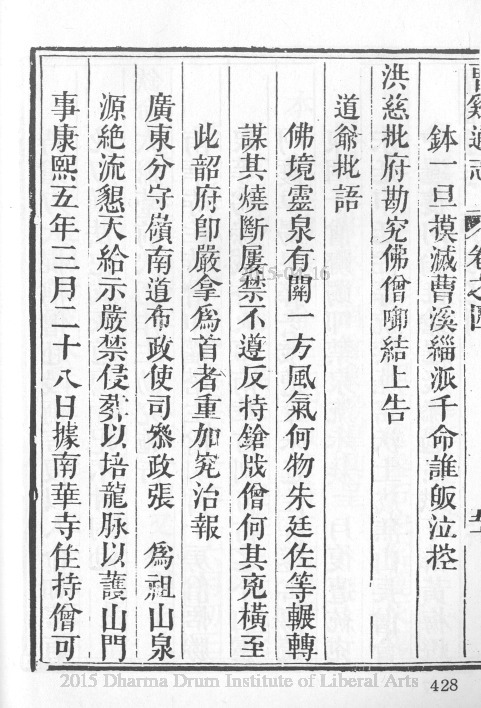 鉢一旦摸滅曹溪緇派千命誰皈泣控
洪慈批府勘究佛僧啣結上告
道爺批語
佛境靈泉有關一方風氣何物朱廷佐等輾轉
謀其燒斷屢禁不遵反持鎗戕僧何其兇橫至
此韶府卽嚴拿爲首者重加究治報
廣東分守嶺南道布政使司叅政張　爲祖山泉
源絶流懇天給示嚴禁侵葬以培龍脉以護山門
事康熙五年三月二十八日據南華寺住持僧可
2015 Dharma Drum Institute of Liberal Arts
428